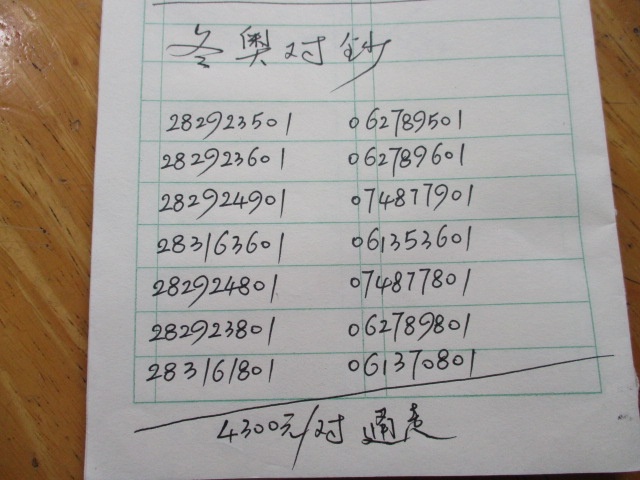 冬奥对钞
282923501 062789501
282923601 062789601
282924901 074877901
283163601 061353601
282924801 074877801
282923801 062789801
283161801 061370801
4300元/对 通走